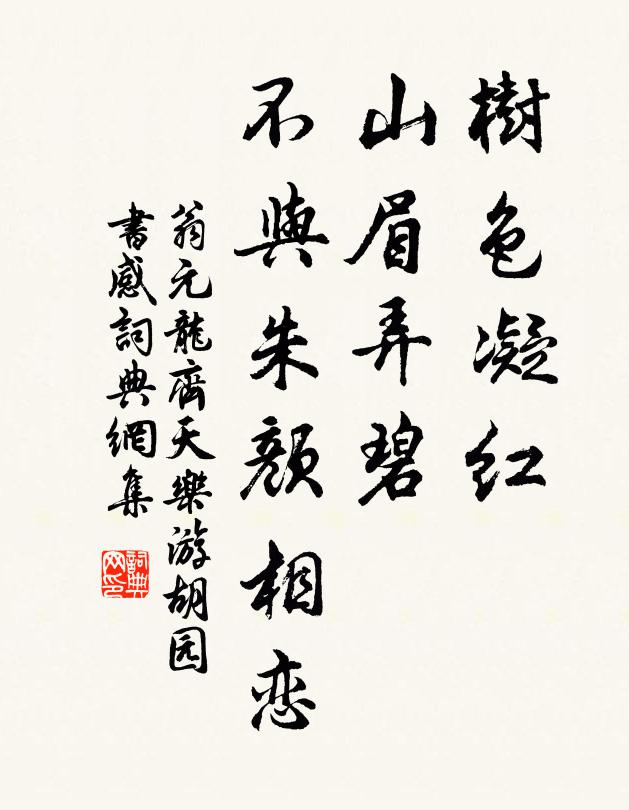 樹色凝红
山眉弄碧
不與朱顔相恋
翁元龍齊天樂游胡园
書感詞典網集
詞典网印